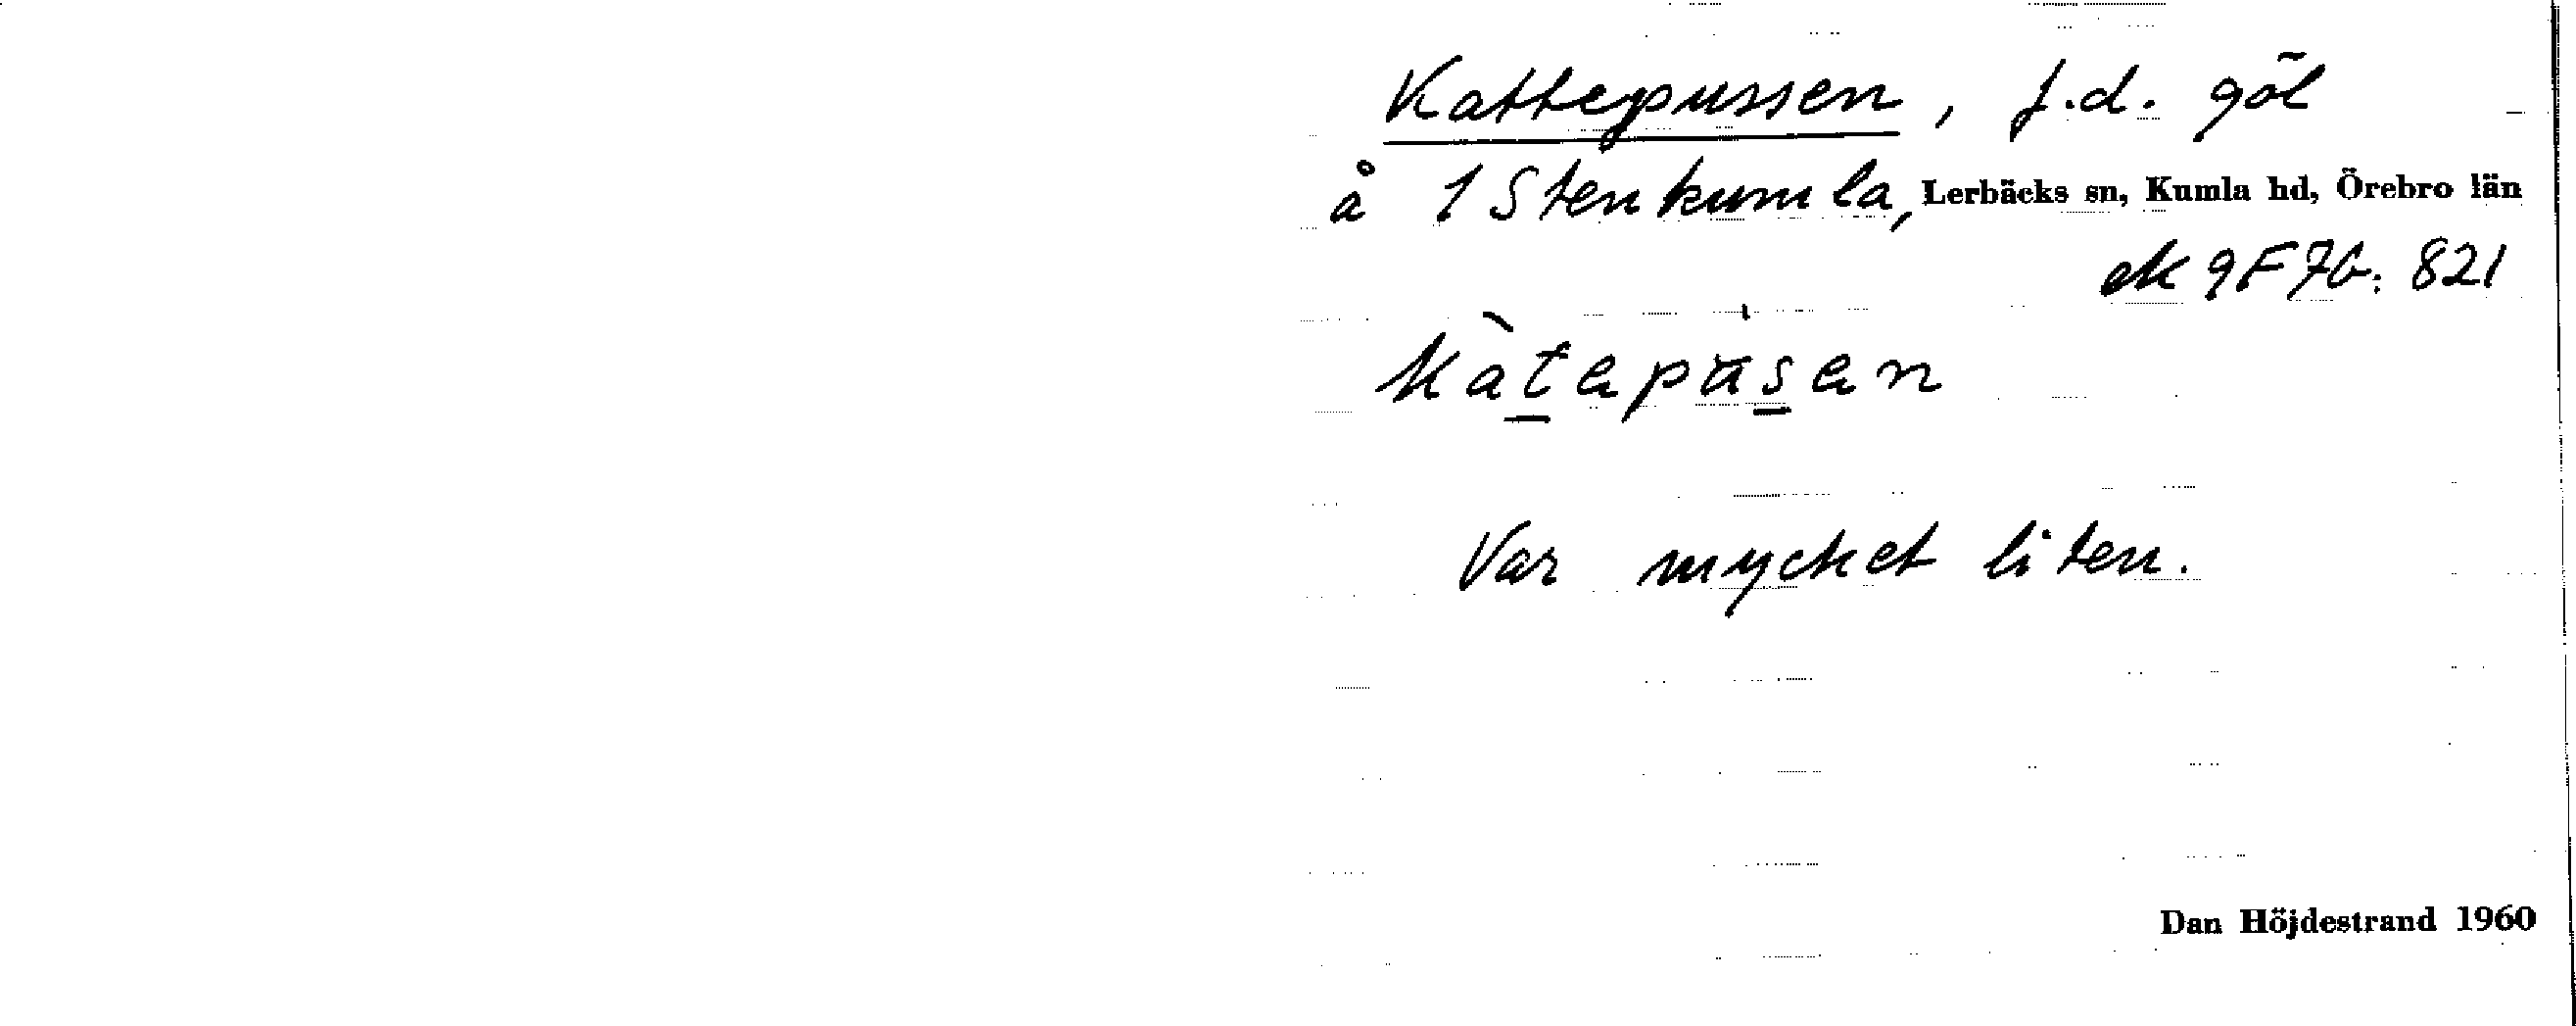 Kattepussen, f.d. göl
å 1 Stenkumla, Lerbäcks sn, Kumla hd, Örebro län
ek 9F7b: 821
kàtapusan
Var mycket liten.
Dan Höjdestrand 1960